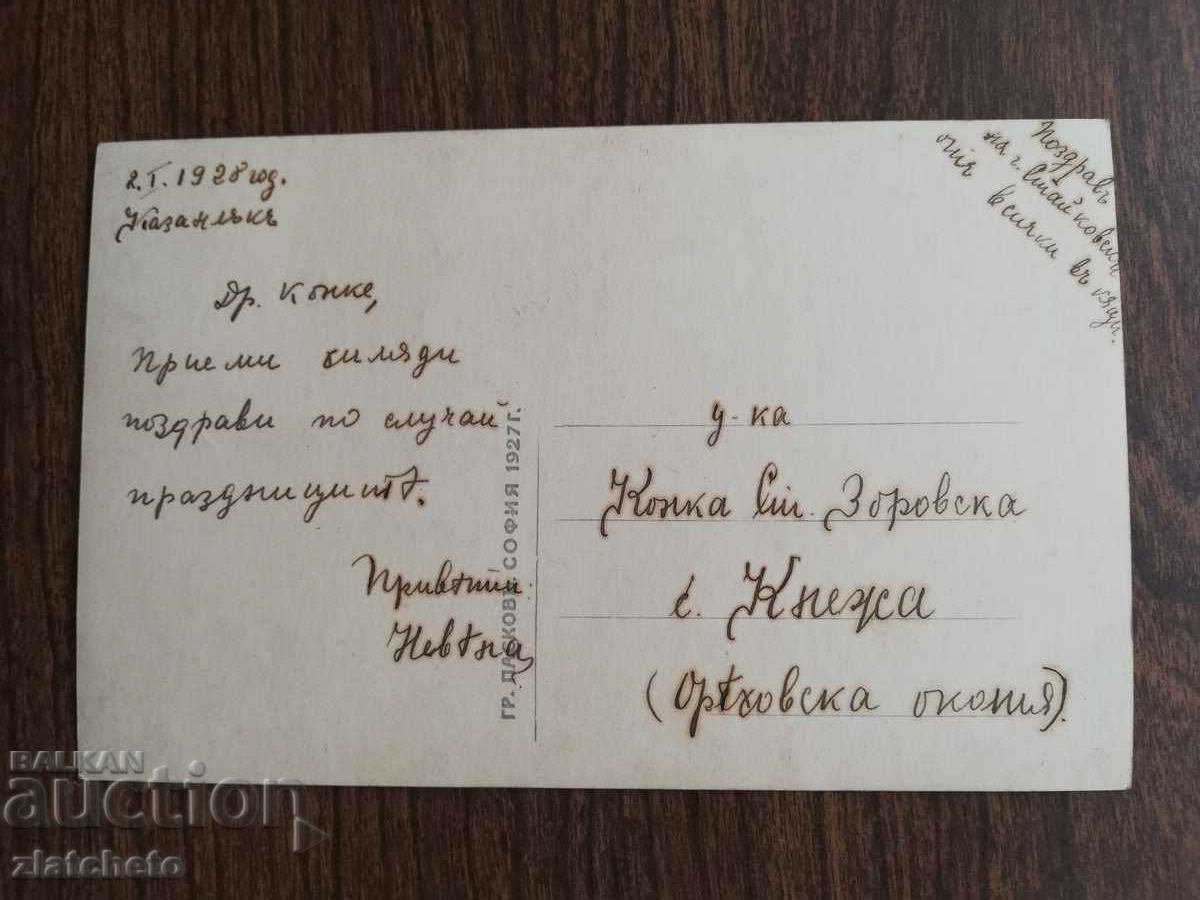 2.I.1928 год.
Казанлѫкъ
Др. Конке,
Приеми хиляди
поздрави по случай
празднициитѣ.
Привѣтъ
Невѣна
ГР. ПАСКОВЪ СОФИЯ 1927 Г.
Поздравъ
на г. Стайкови и
отъ всички въ кѫщи.
у-ка
Конка Ст. Збровска
с. Кнежа
(Орѣховска околия).
BALKAN
auction
zlatcheto